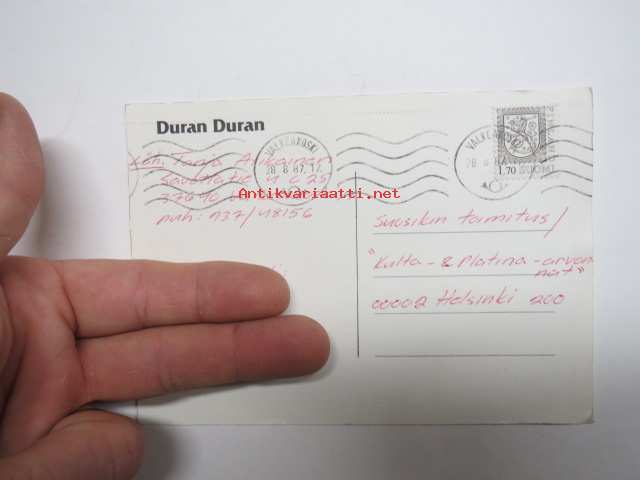 Duran Duran
VALKEAKOSKI
28.8.87.17
VALKEAKOSKI
28.8.87
1,70 SUOMI
Läh. Tarja
4 C 25
37670
puh: 937/48156
Antikvariaatti.net
Suosikin toimitus/
"Kulta- & Platina-arvon-
nat"
00002 Helsinki 200